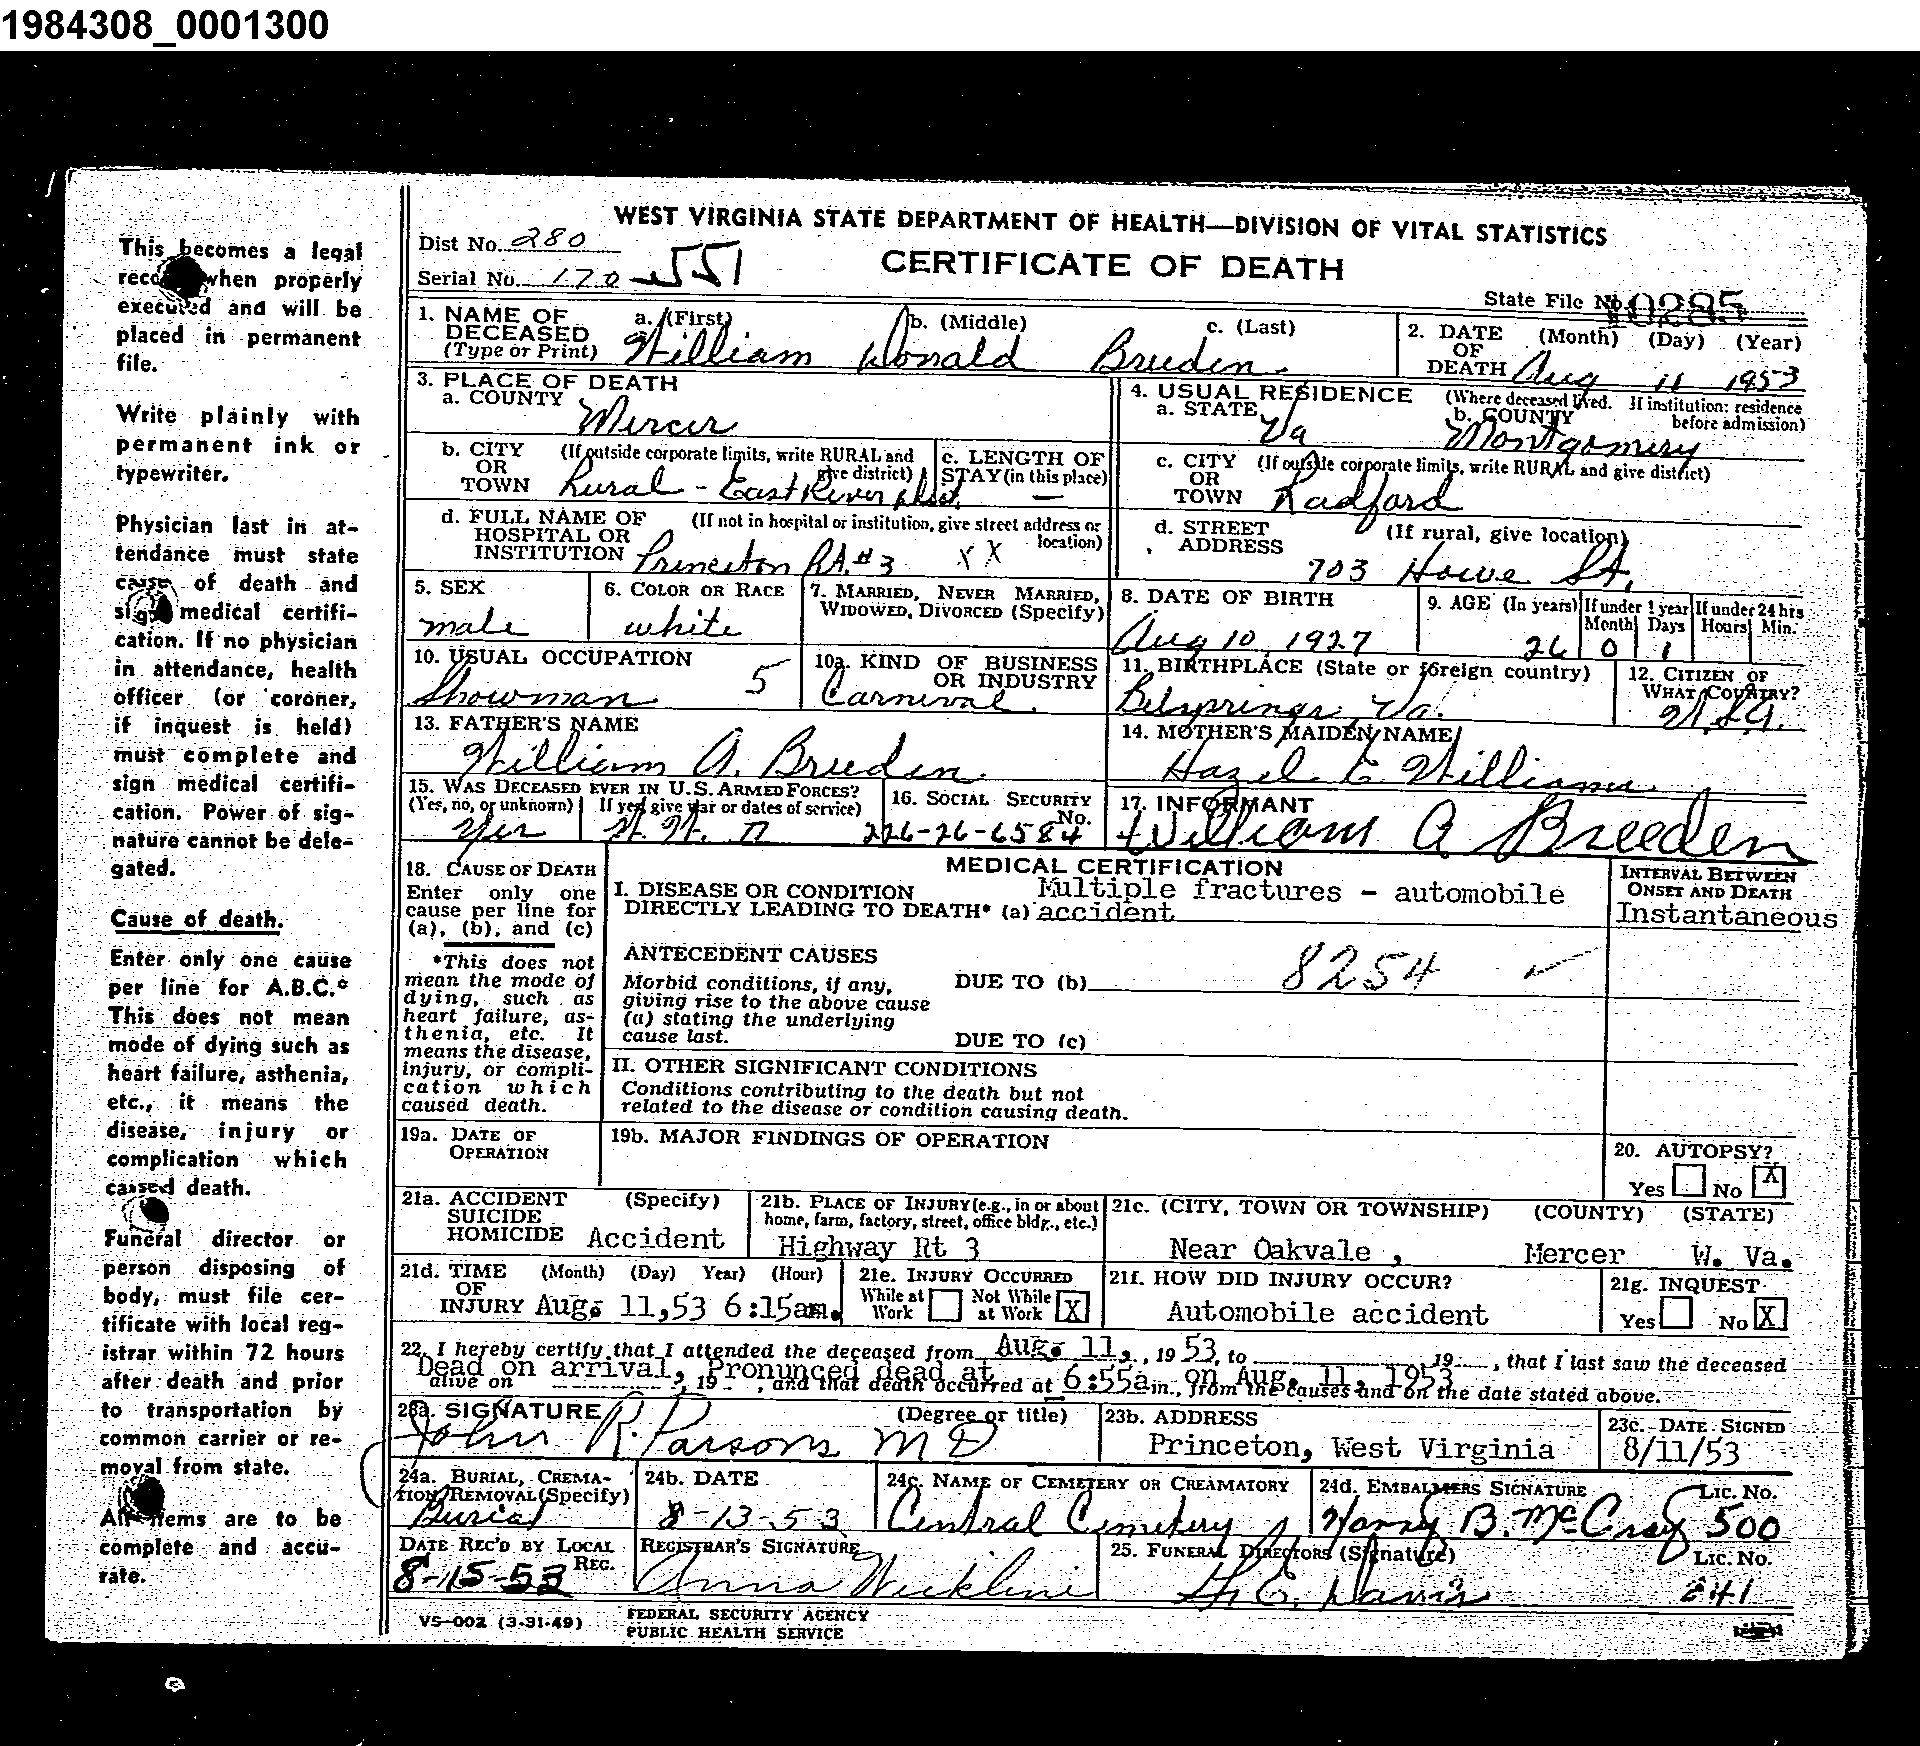 1984308_0001300
This becomes a legal
record when properly
executed and will be
placed in permanent
file.
Write plainly with
permanent ink or
typewriter.
Physician last in at-
tendance must state
cause of death and
sign medical certifi-
cation. If no physician
in attendance, health
officer (or coroner,
if inquest is held)
must complete and
sign medical certifi-
cation. Power of sig-
nature cannot be dele-
gated.
Cause of death.
Enter only one cause
per line for A.B.C.*
This does not mean
mode of dying such as
heart failure, asthenia,
etc., it means the
disease, injury or
complication which
caused death.
Funeral director or
person disposing of
body, must file cer-
tificate with local reg-
istrar within 72 hours
after death and prior
to transportation by
common carrier or re-
moval from state.
All items are to be
complete and accu-
rate.
WEST VIRGINIA STATE DEPARTMENT OF HEALTH—DIVISION OF VITAL STATISTICS
Dist No. 280
Serial No. 170 551
CERTIFICATE OF DEATH
State File No. 10285
1. NAME OF DECEASED (Type or Print) a. (First) b. (Middle) c. (Last)
William Donald Breeden
2. DATE OF DEATH (Month) (Day) (Year)
Aug 11 1953
3. PLACE OF DEATH
a. COUNTY Mercer
4. USUAL RESIDENCE (Where deceased lived. If institution: residence before admission)
a. STATE Va b. COUNTY Montgomery
b. CITY OR TOWN (If outside corporate limits, write RURAL and give district)
Rural - East River Dist.
c. LENGTH OF STAY (in this place) —
c. CITY OR TOWN (If outside corporate limits, write RURAL and give district)
Radford
d. FULL NAME OF HOSPITAL OR INSTITUTION (If not in hospital or institution, give street address or location)
Princeton Rt. #3 X X
d. STREET ADDRESS (If rural, give location)
703 Howe St.
5. SEX male
6. COLOR OR RACE white
7. MARRIED, NEVER MARRIED, WIDOWED, DIVORCED (Specify)
8. DATE OF BIRTH Aug 10, 1927
9. AGE (In years) 26 If under 1 year Month 0 Days 1 If under 24 hrs Hours Min.
10. USUAL OCCUPATION Showman 5
10a. KIND OF BUSINESS OR INDUSTRY Carnival
11. BIRTHPLACE (State or foreign country) Belsprings, Va.
12. CITIZEN OF WHAT COUNTRY? U.S.A.
13. FATHER'S NAME William A. Breeden
14. MOTHER'S MAIDEN NAME Hazel E Williams
15. WAS DECEASED EVER IN U.S. ARMED FORCES?
(Yes, no, or unknown) Yes If yes give war or dates of service) W. W. II
16. SOCIAL SECURITY No. 226-26-6584
17. INFORMANT William A Breeden
MEDICAL CERTIFICATION
18. CAUSE OF DEATH
Enter only one cause per line for (a), (b), and (c)
*This does not mean the mode of dying, such as heart failure, asthenia, etc. It means the disease, injury, or complication which caused death.
I. DISEASE OR CONDITION DIRECTLY LEADING TO DEATH* (a) Multiple fractures - automobile accident
INTERVAL BETWEEN ONSET AND DEATH
Instantaneous
ANTECEDENT CAUSES
Morbid conditions, if any, giving rise to the above cause (a) stating the underlying cause last.
DUE TO (b) 8254 ✓
DUE TO (c)
II. OTHER SIGNIFICANT CONDITIONS
Conditions contributing to the death but not related to the disease or condition causing death.
19a. DATE OF OPERATION
19b. MAJOR FINDINGS OF OPERATION
20. AUTOPSY?
Yes No X
21a. ACCIDENT SUICIDE HOMICIDE (Specify) Accident
21b. PLACE OF INJURY (e.g., in or about home, farm, factory, street, office bldg., etc.)
Highway Rt 3
21c. (CITY, TOWN OR TOWNSHIP) (COUNTY) (STATE)
Near Oakvale , Mercer W. Va.
21d. TIME OF INJURY (Month) (Day) Year) (Hour)
Aug. 11,53 6:15am.
21e. INJURY OCCURRED
While at Work Not While at Work X
21f. HOW DID INJURY OCCUR?
Automobile accident
21g. INQUEST
Yes No X
22. I hereby certify that I attended the deceased from Aug. 11, , 19 53, to 19 , that I last saw the deceased
Dead on arrival, Pronounced dead at 6:55a on Aug. 11, 1953
alive on , 19 , and that death occurred at m., from the causes and on the date stated above.
23a. SIGNATURE (Degree or title)
John R. Parsons MD
23b. ADDRESS
Princeton, West Virginia
23c. DATE SIGNED
8/11/53
24a. BURIAL, CREMATION, REMOVAL (Specify)
Burial
24b. DATE
8-13-53
24c. NAME OF CEMETERY OR CREAMATORY
Central Cemetery
24d. EMBALMERS SIGNATURE Lic. No.
Harry B. McCray 500
DATE REC'D BY LOCAL REG.
8-15-53
REGISTRAR'S SIGNATURE
Anna Wickline
25. FUNERAL DIRECTORS (Signature) Lic. No.
Davis 641
VS-002 (3-31-49)
FEDERAL SECURITY AGENCY
PUBLIC HEALTH SERVICE